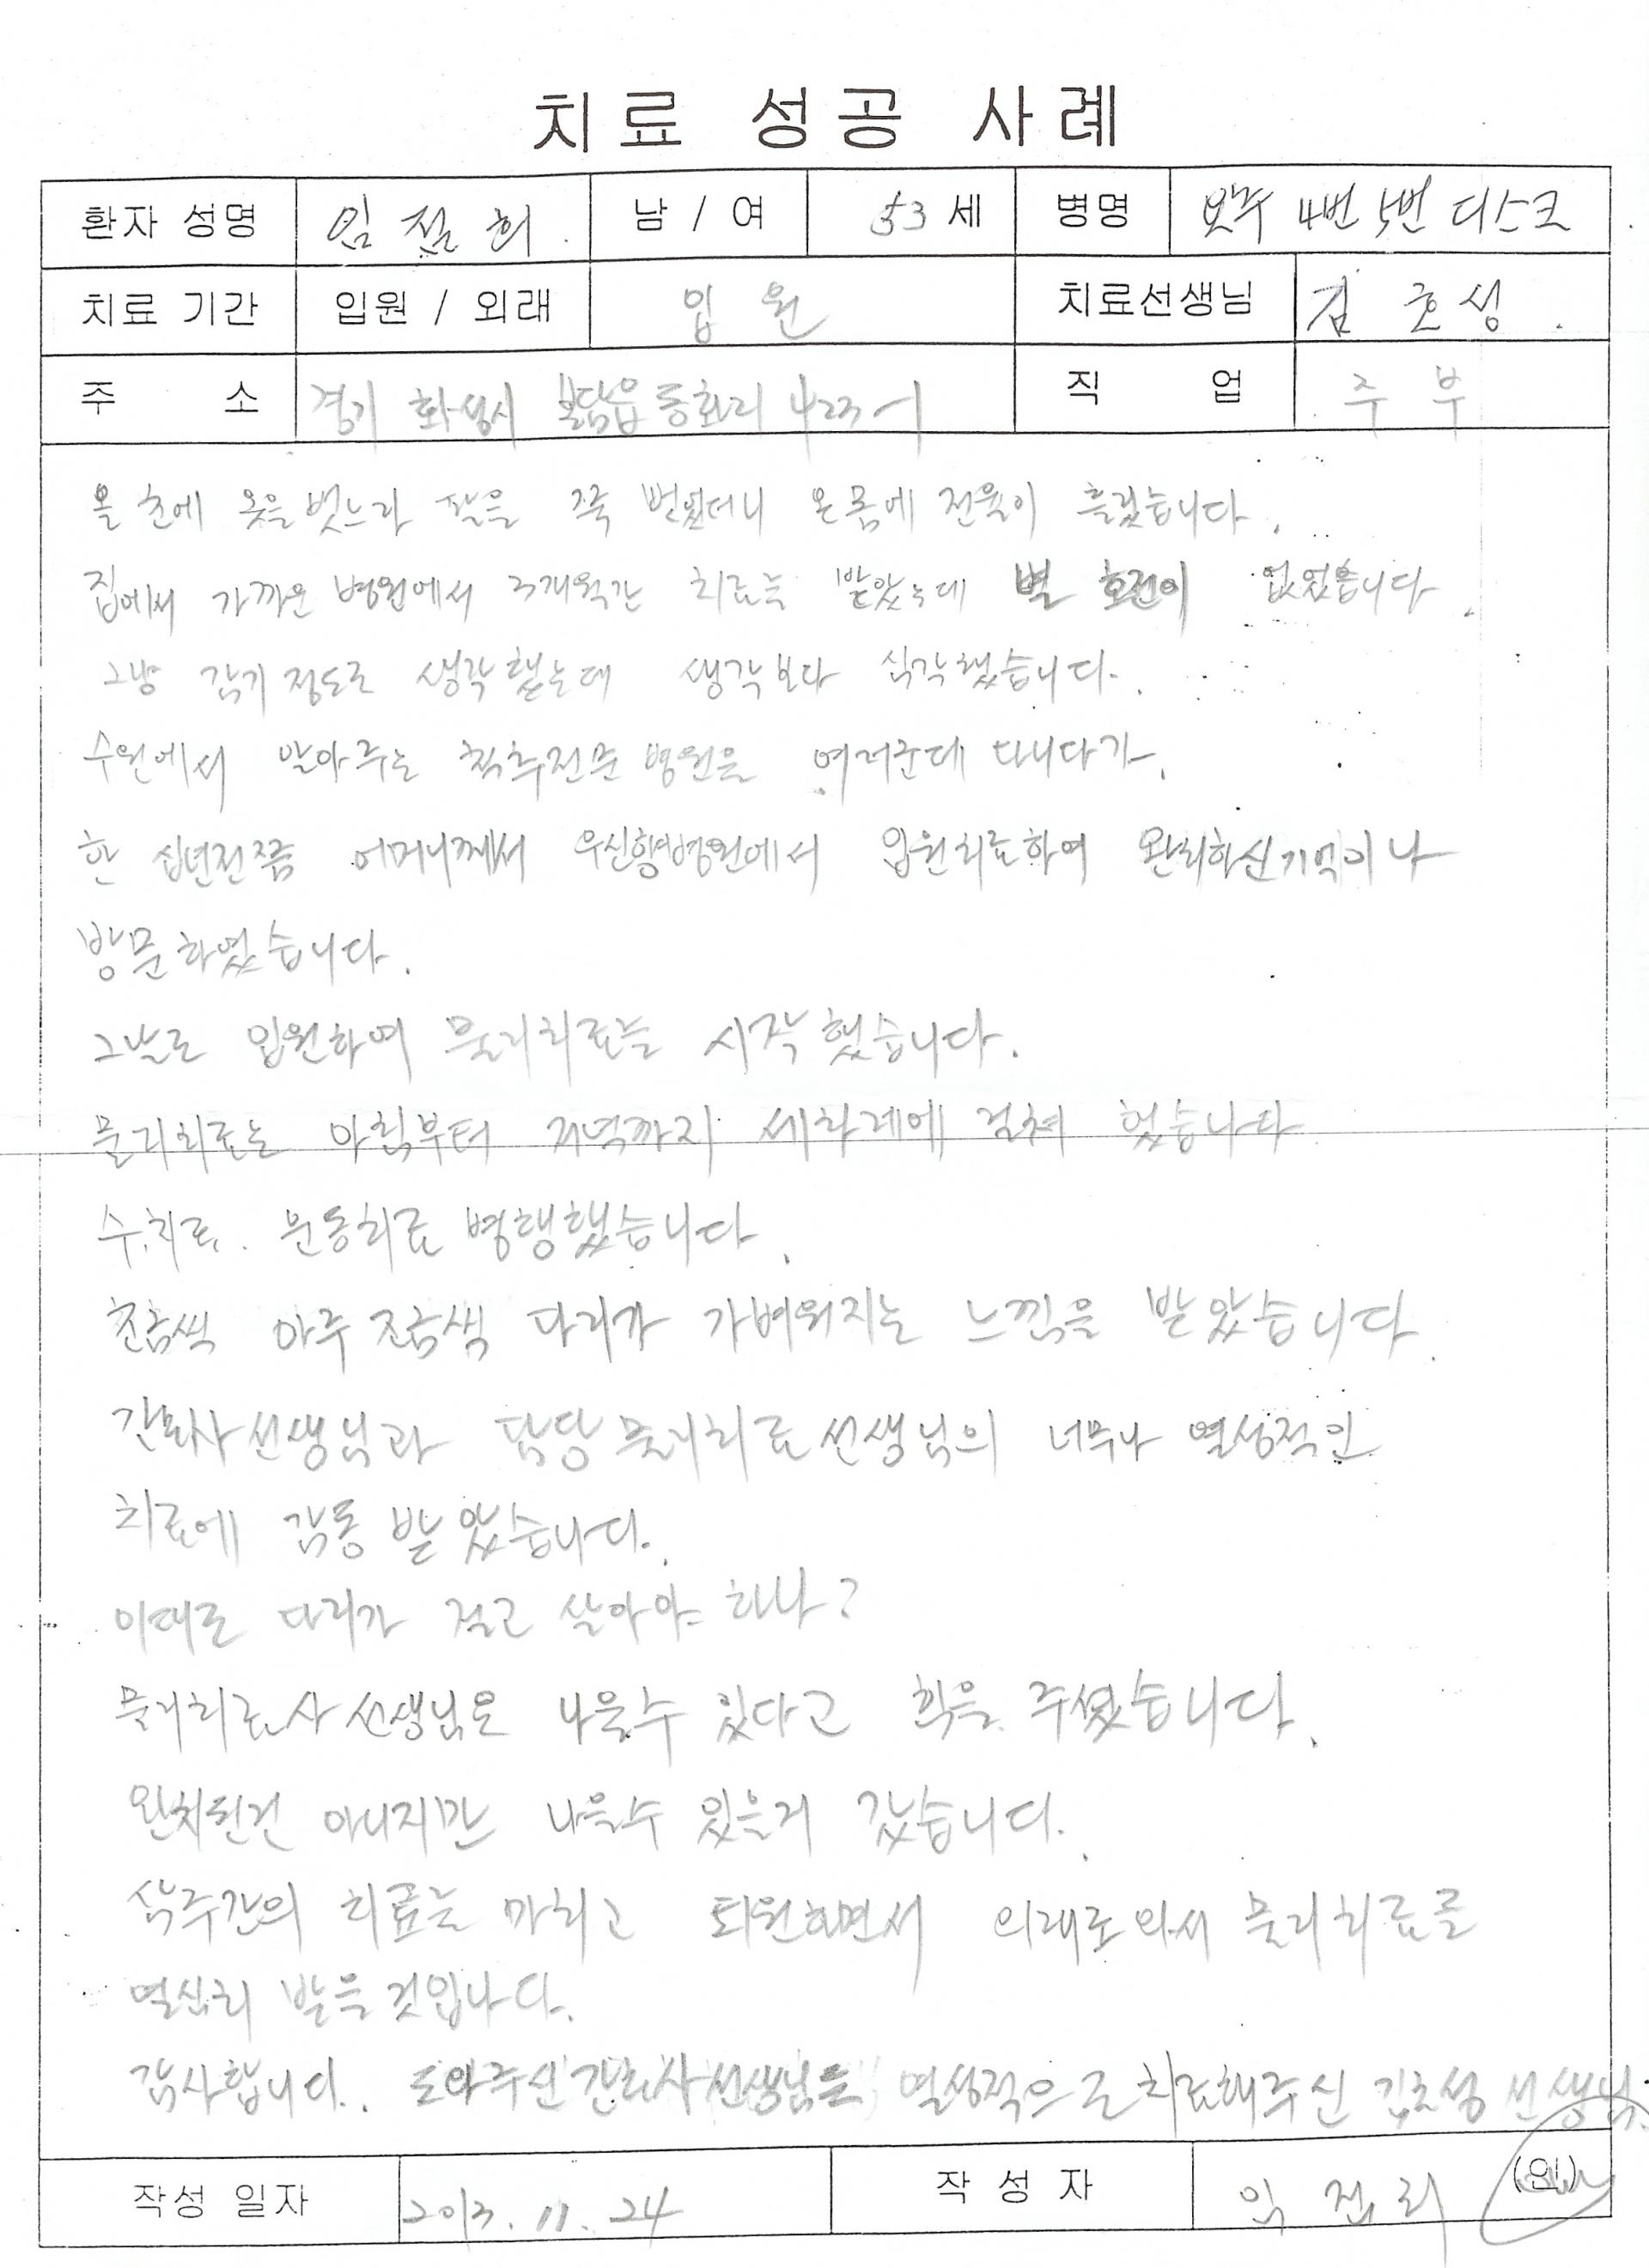 치료 성공 사례
환자 성명 임 점 희 남 / 여 53 세 병명 요추 4번 5번 디스크
치료 기간 입원 / 외래 입 원 치료선생님 김 초 성
주 소 경기 화성시 봉담읍 동화리 423-1 직 업 주 부
올 초에 옷을 벗느라 팔을 쭉 뻗었더니 온몸에 전율이 흘렀습니다.
집에서 가까운 병원에서 3개월간 치료를 받았는데 별 호전이 없었읍니다.
그냥 감기 정도로 생각했는데 생각보다 심각했습니다.
수원에서 알아주는 척추전문 병원을 여러군데 다니다가.
한 십년전쯤 어머니께서 우신향병원에서 입원치료하여 완치하신 기억이 나
방문하였습니다.
그날로 입원하여 물리치료를 시작했습니다.
물리치료는 아침부터 저녁까지 세차례에 걸쳐 했습니다
수.치료. 운동치료 병행했습니다.
조금씩 아주 조금씩 다리가 가벼워지는 느낌을 받았습니다.
간호사 선생님과 담당 물리치료 선생님의 너무나 열성적인
치료에 감동 받았습니다.
이대로 다리가 절고 살아야 하나?
물리치료사 선생님은 나을수 있다고 힘을 주셨습니다.
완치된건 아니지만 나을수 있을거 같습니다.
삼주간의 치료를 마치고 퇴원하면서 외래로 와서 물리치료를
열심히 받을 것입니다.
감사합니다.. 도와주신 간호사 선생님들 열성적으로 치료해주신 김초성 선생님.
작성 일자 2013. 11. 24 작 성 자 임 점 희 (인)